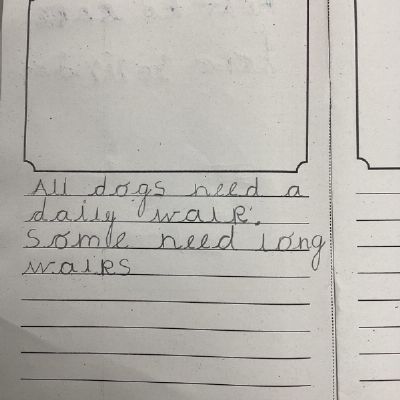 All dogs need a
daily walk.
Some need long
walks